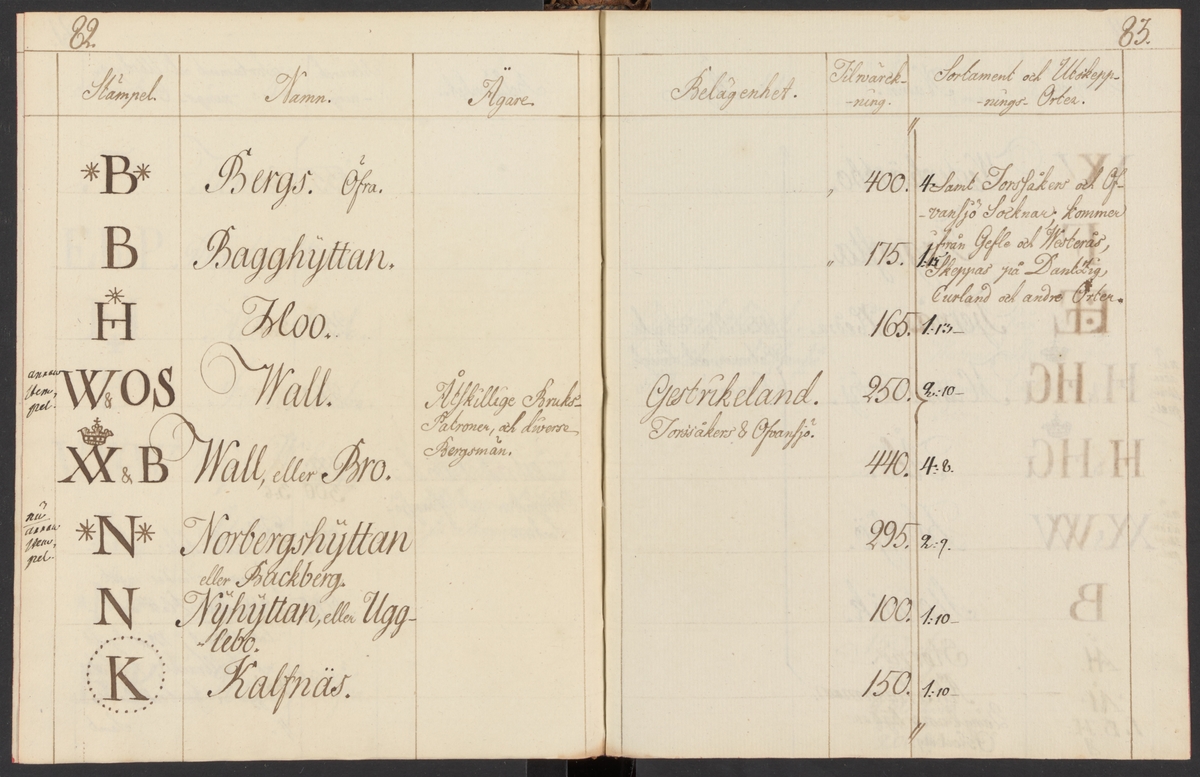 82.
Stämpel. Namn. Ägare.
*B* Bergs. Öfra.
B Bagghÿttan.
H Hoo.
annan
stem-
pel.
W&OS Wall.
Åtskillige Bruks-
Patroner, och diverse
Bergsmän.
W&B Wall, eller Bro.
nu
annan
stem-
pel.
*N* Norbergshÿttan
eller Backberg.
N Nÿhÿttan, eller Ugg-
lebo.
K Kalfnäs.
83.
Belägenhet. Tilwärck-
-ning. Sortament och Utskepp-
-nings- Orter.
Gestrikeland.
Torsåkers & Ofvansjö.
" 400. 4:
Samt Torsåkers och Of-
-vansjö Socknar, kommer
från Gefle och Westerås,
" 175. 1:15
Skeppas på Dantzig,
Curland och andre Orter.
165. 1:13-
250. 2:10-
440. 4:8.
295. 2:9.
100. 1:10-
150. 1:10-